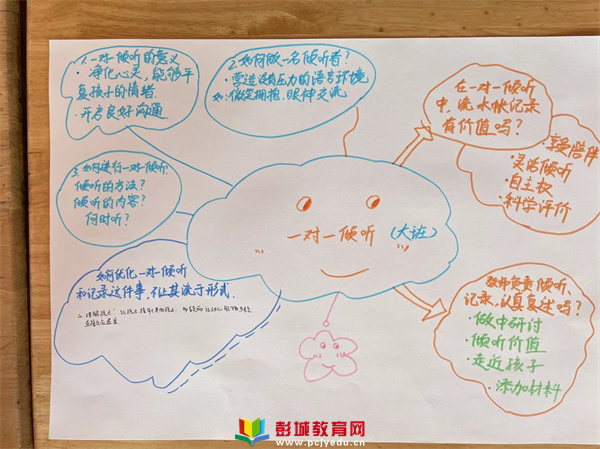 1.一对一倾听的意义
·净化心灵,能够平
复孩子的情绪
·开启良好沟通
2.如何做一名倾听者?
·营造没有压力的语言环境
如:微笑拥抱、眼神交流
在一对一倾听
中,流水帐记录
有价值吗?
享受陪伴
·灵活倾听
·自主权
·科学评价
3.如何进行一对一倾听
倾听的方法?
倾听的内容?
何时听?
一对一倾听
(大班)
如何优化一对一倾听
和记录这件事,不让其流于形式.
教师负责倾听、
记录,认真复述吗?
·做中研讨
·倾听价值
·走近孩子
·添加材料
彭城教育网
www.pcjyedu.cn